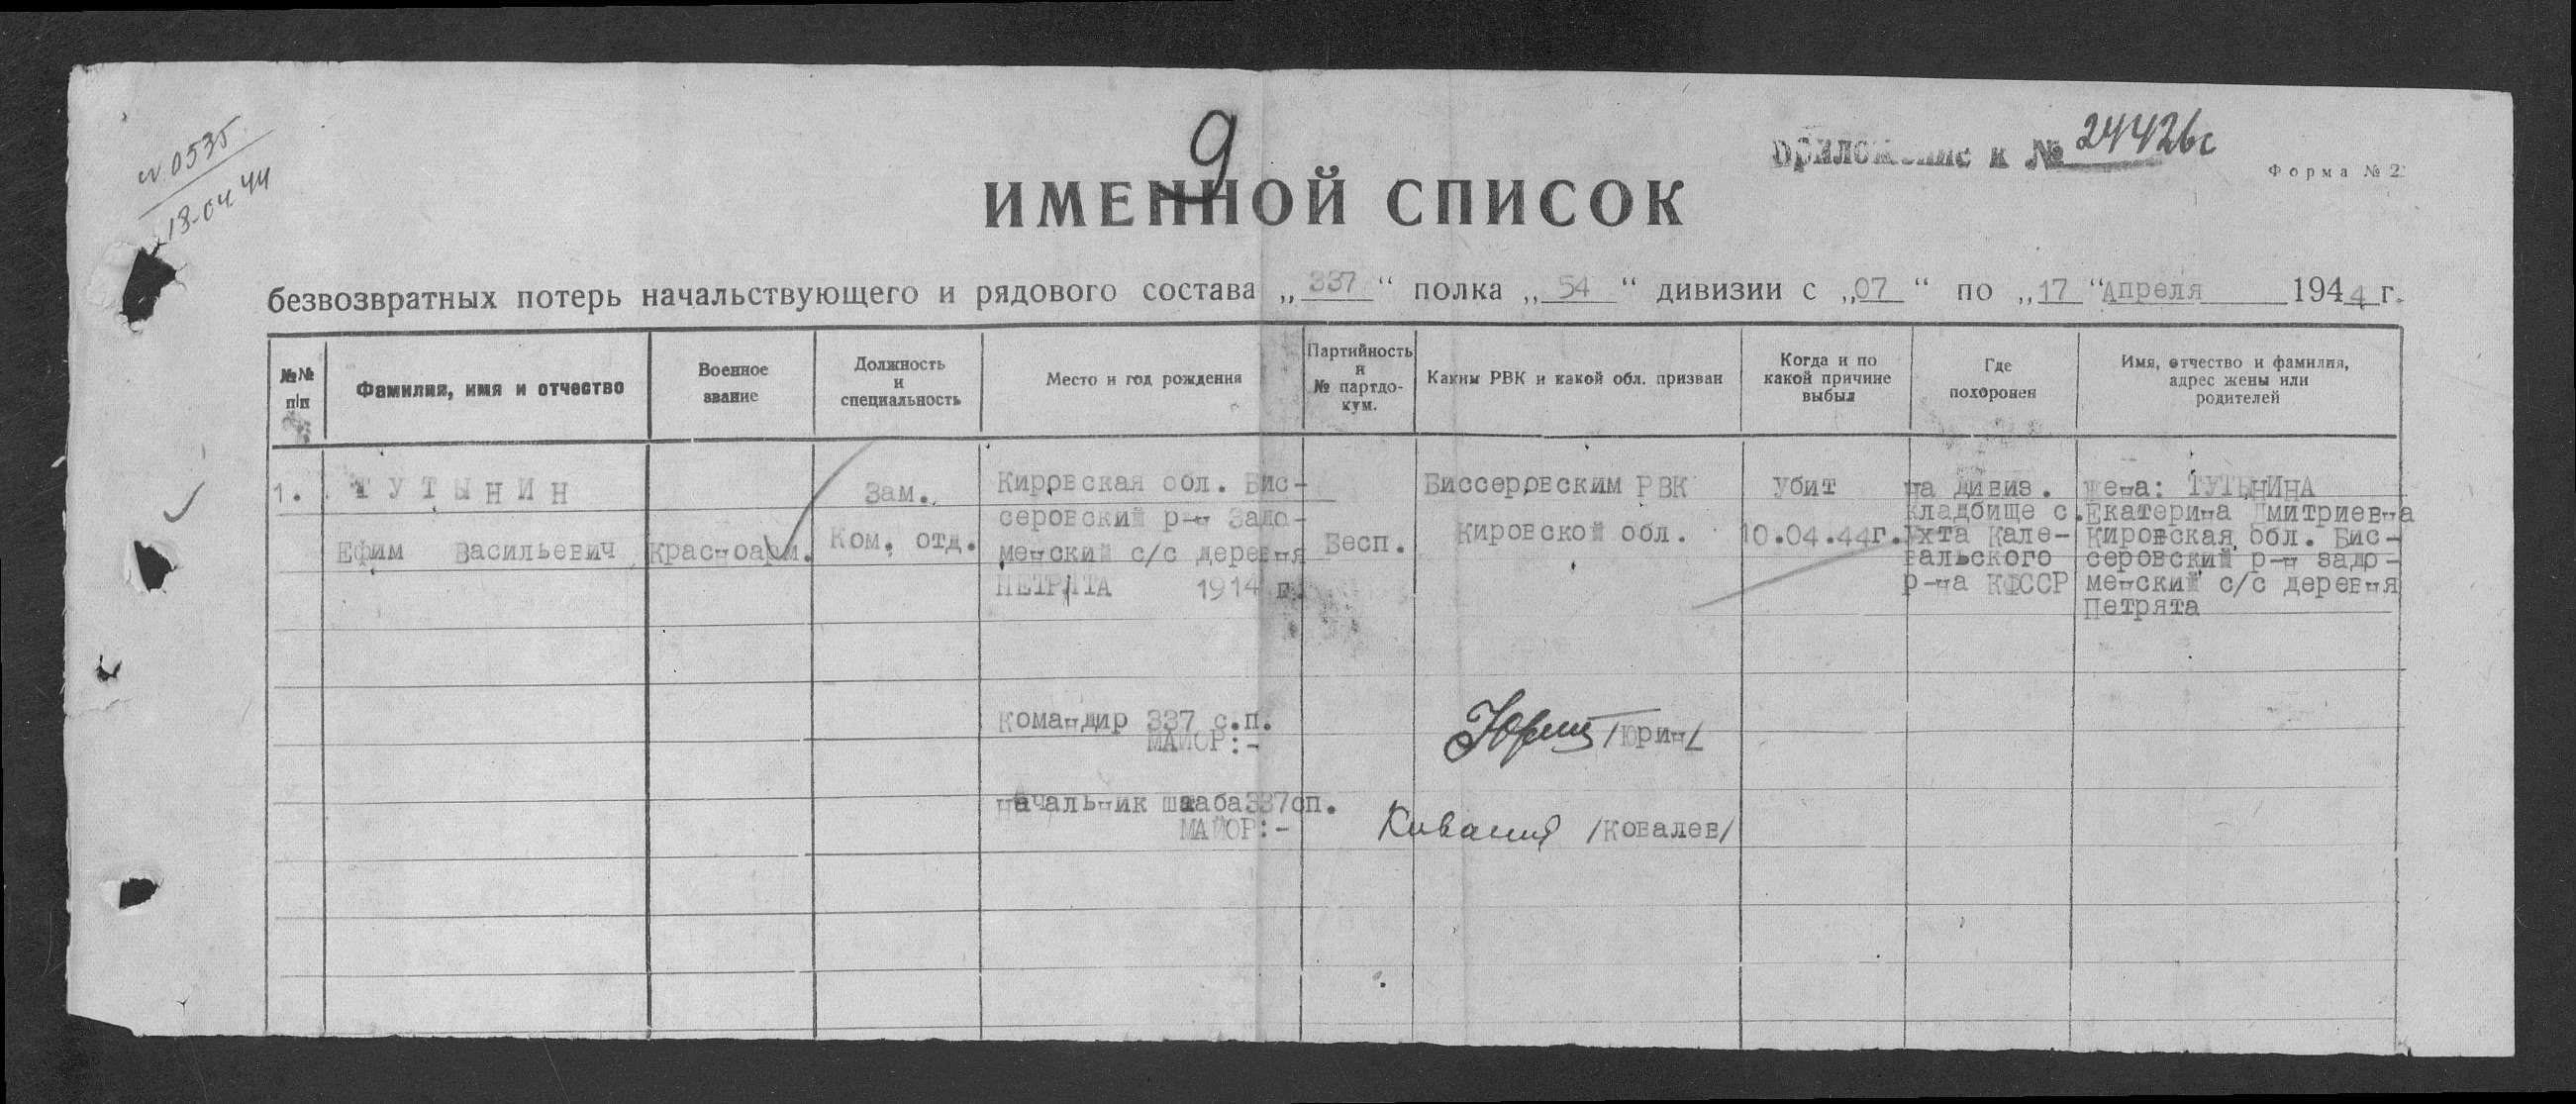 № 0535
13-04.44
9
Приложение к № 24426с
Форма № 2
ИМЕННОЙ СПИСОК
безвозвратных потерь начальствующего и рядового состава „ 337 “ полка „ 54 “ дивизии с „07 “ по „17 “Апреля 1944 г.
№№ п/п
Фамилия, имя и отчество
Военное звание
Должность и специальность
Место и год рождения
Партийность и № партдокум.
Каким РВК и какой обл. призван
Когда и по какой причине выбыл
Где похоронен
Имя, отчество и фамилия, адрес жены или родителей
1.
ТУТЫНИН
Ефим Васильевич
Красноарм.
Зам.
Ком. отд.
Кировская обл. Бис-
серовский р-н Задо-
менский с/с деревня
ПЕТРЯТА 1914 г.
Бесп.
Биссеровским РВК
Кировской обл.
Убит
10.04.44г.
На Дивиз.
кладбище с.
Ухта Кале-
вальского
р-на КФССР
жена: ТУТЫНИНА
Екатерина Дмитриевна
Кировская обл. Бис-
серовский р-н задо-
менский с/с деревня
Петрята
Командир 337 с.п.
МАЙОР:-
Юрин /Юрин/
Начальник штаба 337сп.
МАЙОР:-
/Ковалев/